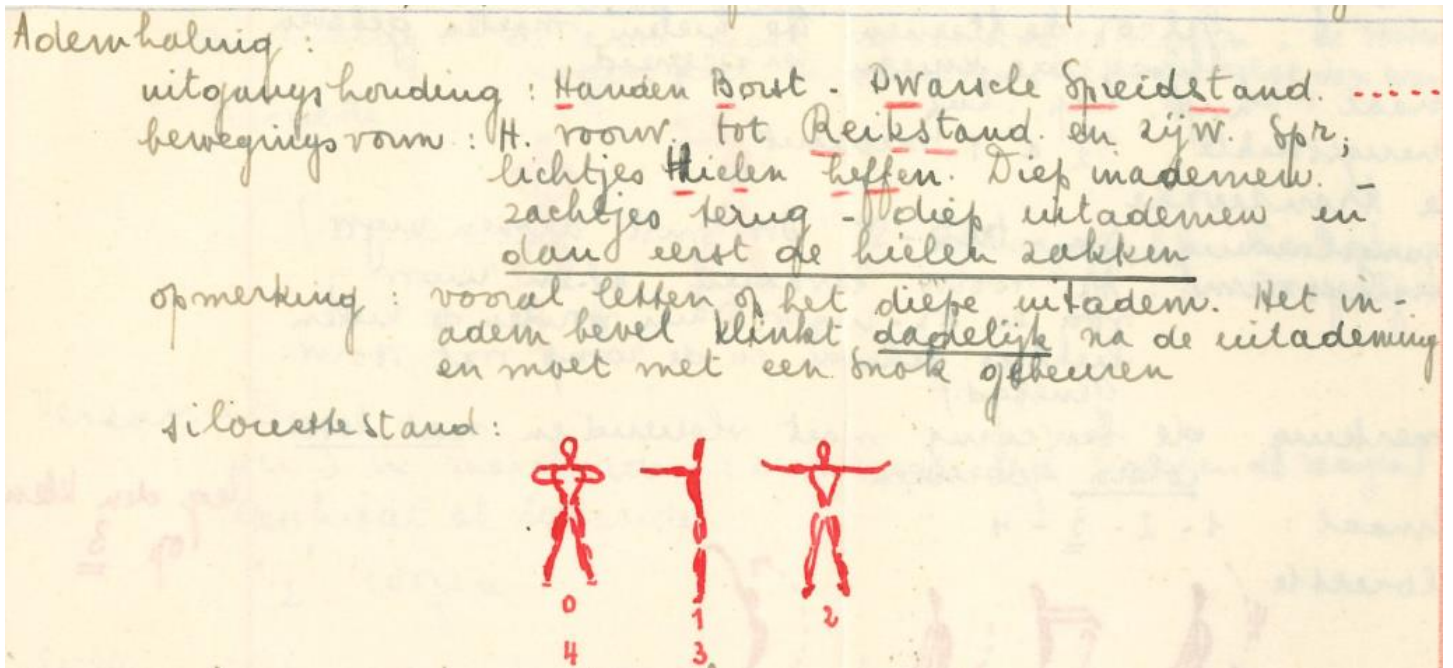 Ademhaling :
uitgangshouding : Handen Borst - DWarsche Spreidstand. ......
bewegingsvorm : H. voorw. tot Reikstand en zijw. Spr.
lichtjes Hielen heffen. Diep inademen. -
zachtjes terug - diep uitademen en
dan eerst de hielen zakken
opmerking : vooral letten op het diepe uitadem. Het in-
adem bevel klinkt dadelijk na de uitademing
en moet met een snok gebeuren
silouettestand:
0 1 2
4 3